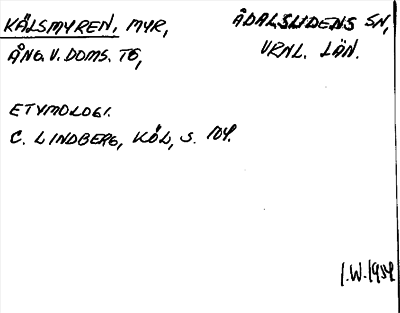 KÅLSMYREN, MYR, ÅDALSLIDENS SN,
ÅNG. V. DOMS. TG, VRNL. LÄN.
ETYMOLOGI.
C. LINDBERG, KÖL, S. 104.
I.W. 1959